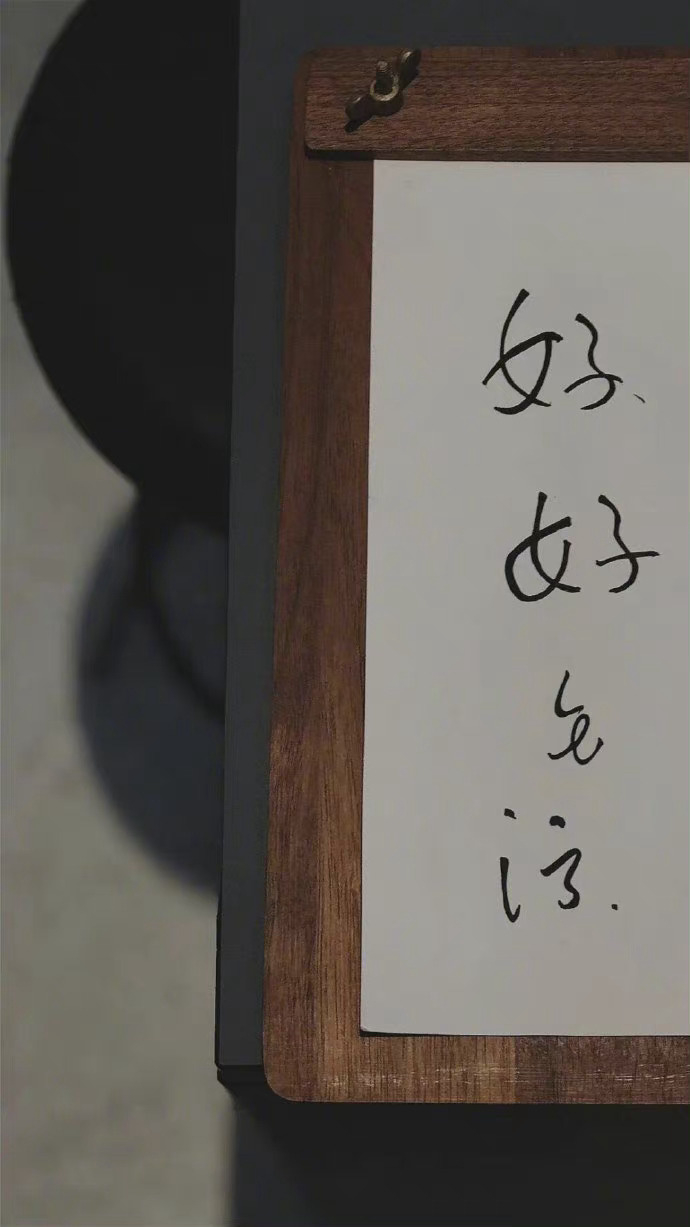 好、
好
生
活.